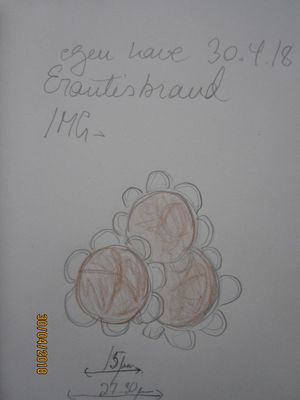 egen have 30.4.18
Erantisbrand
IMG-
15 µm
27-30 µm
30/04/2018